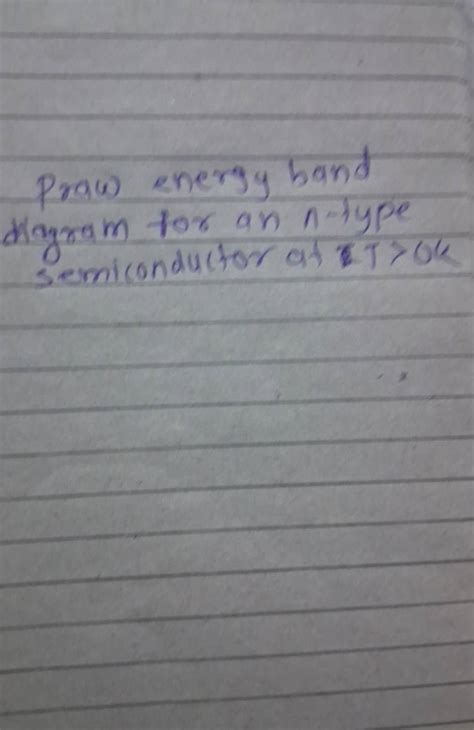 Draw energy band
diagram for an n-type
semiconductor at T > 0K